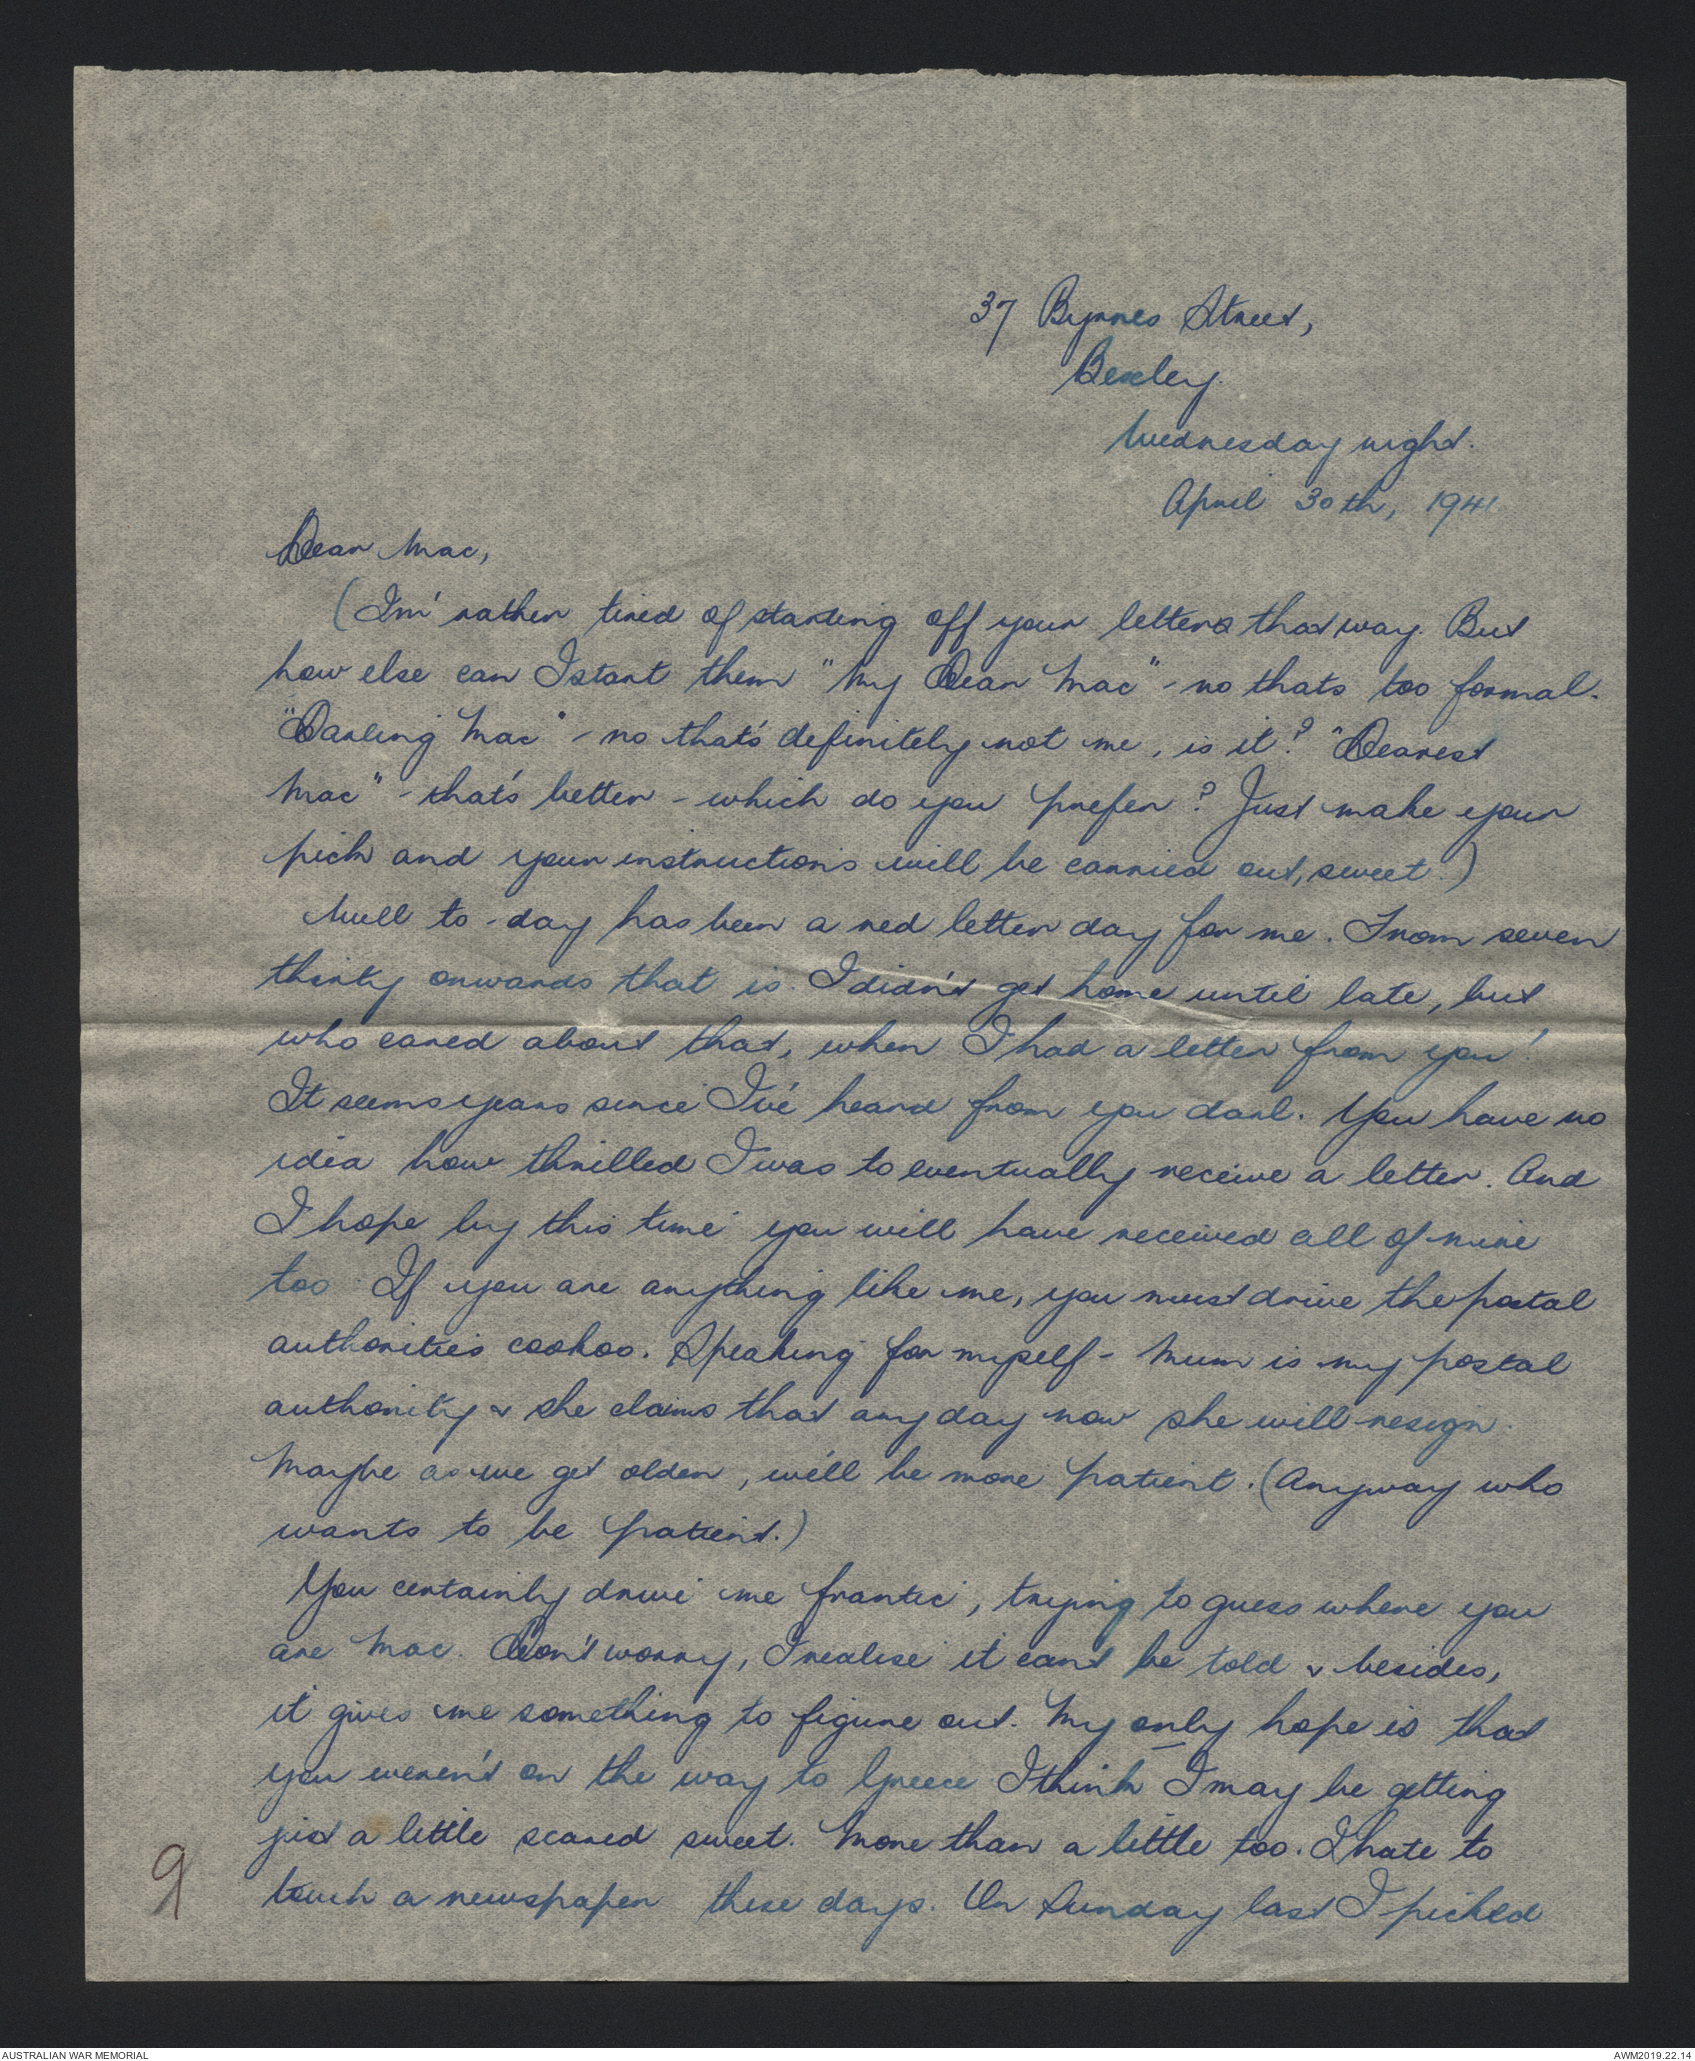 37 Byrnes Street,
Bexley.
Wednesday night.
April 30th, 1941
Dear Mac,
(I'm rather tired of starting off your letters that way. But
how else can I start them "My Dear Mac" - no thats too formal.
"Darling Mac" - no that's definitely not me, is it? "Dearest
Mac" - that's better - which do you prefer? Just make your
pick and your instructions will be carried out, sweet.)
Well to-day has been a red letter day for me. From seven
thirty onwards that is. I didn't get home until late, but
who cared about that, when I had a letter from you!
It seems years since I've heard from you darl. You have no
idea how thrilled I was to eventually receive a letter. And
I hope by this time you will have received all of mine
too. If you are anything like me, you must drive the postal
authorities cookoo. Speaking for myself - Mum is my postal
authority & she claims that any day now she will resign.
Maybe as we get older, we'll be more patient. (Anyway who
wants to be patient.)
You certainly drive me frantic, trying to guess where you
are Mac. Don't worry, I realise it can't be told & besides,
it gives me something to figure out. My only hope is that
you weren't on the way to Greece I think I may be getting
just a little scared sweet. More than a little too. I hate to
touch a newspaper these days. On Sunday last I picked
9
AUSTRALIAN WAR MEMORIAL
AWM2019.22.14